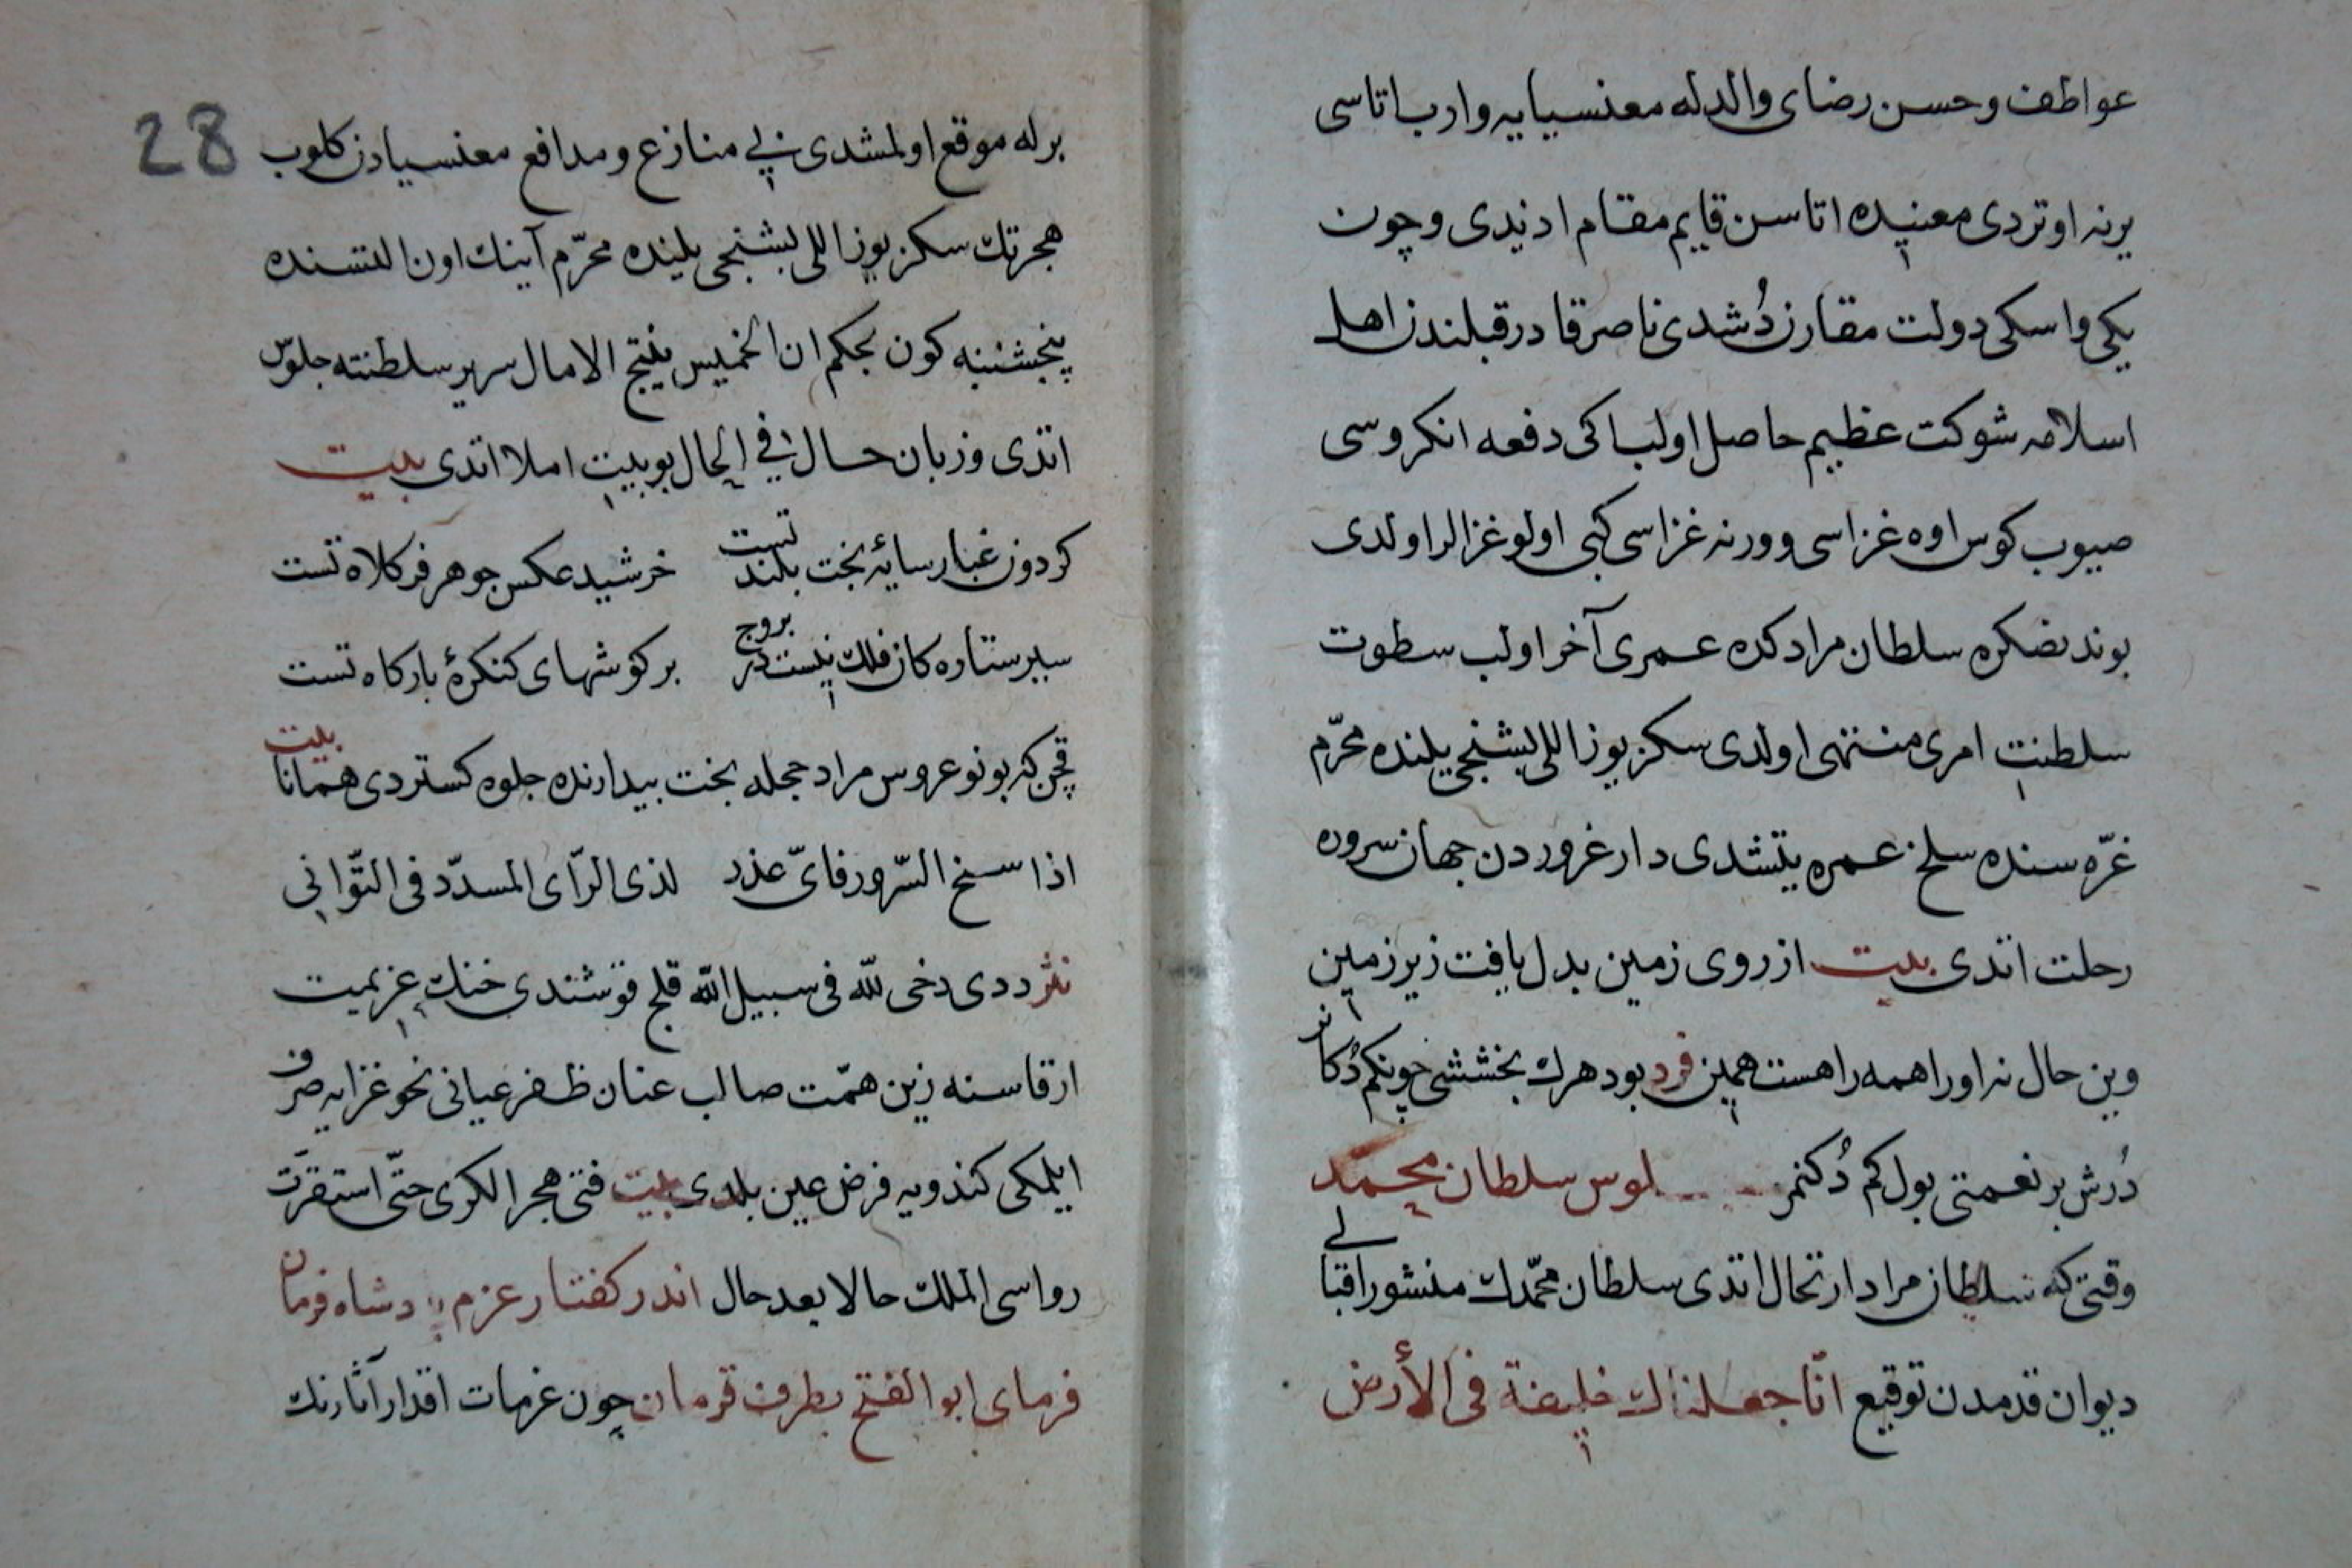 عواطف و حسن رضای والدله معنسیایه وارب اتاسی
یرنه اوتردی معنیده اتاسن قایم مقام ادندی و چون
یکی واسکی دولت مقارن دُشدی ناصر قادر قبلندن اهل
اسلامه شوکت عظیم حاصل اولب اکی دفعه انکروسی
صیوب کوس اوه غزاسی و ورنه غزاسی کبی اولو غزالر اولدی
بوندنضکره سلطان مرادکده عمری آخر اولب سطوت
سلطنت امری منتهی اولدی سکز یوز اللی بشنجی یلنده محرّم
غرّه سنده سلخ عمره یتشدی دار غروردن جهان سروره
رحلت اتدی بیت از روی زمین بدل یافت زیر زمین
وین حال نه اورا همه را هست همین فرد بو دهرک بخششی چونکم دُکاند
دُرش بر نعمتی بول کم دُکنمز لوس سلطان محمد
وقتی که سلطان مراد ارتحال اتدی سلطان محمّدک منشور اقبالی
دیوان قدمدن توقیع انّا جعلناك خلیفة فی الأرض
28
برله موقع اولمشدی بی منازع و مدافع معنسیادن کلوب
هجرتک سکز یوز اللی بشنجی یلنده محرّم آینک اون التسنده
پنجشنبه کون بحکم ان الخمیس ینتج الامال سریر سلطنته جلوس
اتدی و زبان حال فی الحال بو بیت املا اتدی بیت
کردون غبار سایهٔ بخت بلند تست خرشید عکس جوهر فر کلاه تست
سیر ستاره کان فلک نیست در بروج بر کوشهای کنکرهٔ بارکاه تست
قچن که بو نو عروس مراد حجلهٔ بخت بیدارنده جلوه کستردی همانا بیت
اذا سنح السّرور فایّ عذر لذی الرّأی المسدّد فی التّوانی
نثر ددی دخی لله فی سبیل الله قلج قوشندی خنک عزیمت
ارقاسنه زین همّت صالب عنان ظفر عیانی نحو غزایه صرف
ایلمکی کندویه فرض عین بلدی بیت فتی هجر الکری حتّی استقرّت
رواسی الملک حالا بعد حال اندر کفتار عزم پادشاه فرمان
فرمای ابو الفتح بطرف قرمان چون عزمات اقدار آثارنک